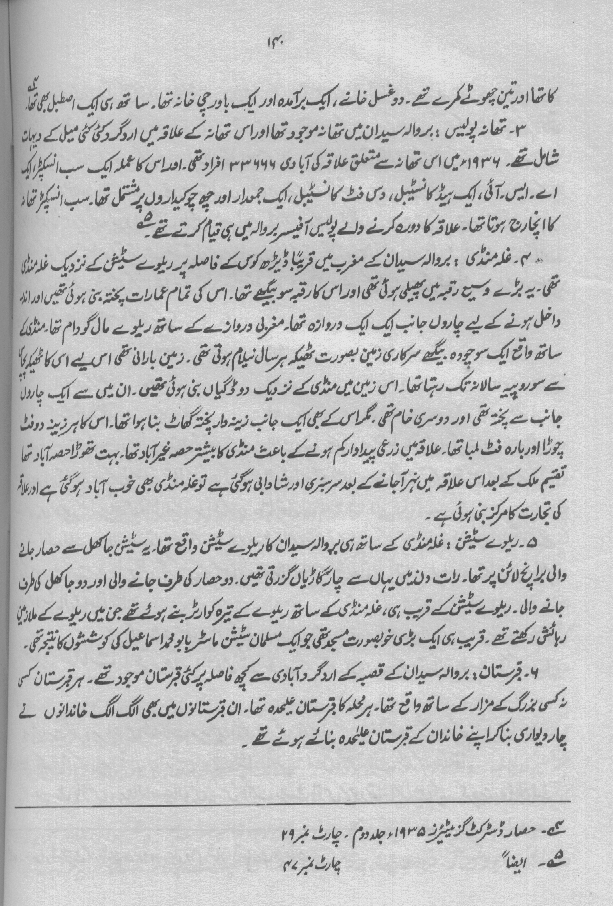 ۱۴۰
کا تھا اور تین چھوٹے کمرے تھے۔ دو غسل خانے، ایک برآمدہ اور ایک باورچی خانہ تھا۔ ساتھ ہی ایک اصطبل بھی تھا۔
۳۔ تھانہ پولیس : بروالہ سیدان میں تھانہ موجود تھا اور اس تھانہ کے علاقہ میں اردگرد کئی کئی میل کے دیہات
شامل تھے۔ ۱۹۳۶ء میں اس تھانہ سے متعلق علاقہ کی آبادی ۳۳۶۶۶ افراد تھی۔ اور اس کا عملہ ایک سب انسپکٹر، ایک
اے۔ ایس۔ آئی، ایک ہیڈ کانسٹیبل، دس فٹ کانسٹیبل، ایک جمعدار اور چھ چوکیداروں پر مشتمل تھا۔ سب انسپکٹر تھانہ
کا انچارج ہوتا تھا۔ علاقہ کا دورہ کرنے والے پولیس آفیسر بروالہ میں ہی قیام کرتے تھے۔ ۵
۴۔ غلہ منڈی : بروالہ سیدان کے مغرب میں قریباً ڈیڑھ کوس کے فاصلہ پر ریلوے سٹیشن کے نزدیک غلہ منڈی
تھی۔ یہ بڑے وسیع رقبہ میں پھیلی ہوئی تھی اور اس کا رقبہ سو بیگھے تھا۔ اس کی تمام عمارات پختہ بنی ہوئی تھیں اور اندر
داخل ہونے کے لیے چاروں جانب ایک ایک دروازہ تھا۔ مغربی دروازے کے ساتھ ریلوے مال گودام تھا۔ منڈی کے
ساتھ واقع ایک سو چودہ بیگھے سرکاری زمین بصورت ٹھیکہ ہر سال نیلام ہوتی تھی۔ زمین بارانی تھی اس لیے اس کا ٹھیکہ
سے سو روپیہ سالانہ تک رہتا تھا۔ اس زمین میں منڈی کے نزدیک دو ڈگیاں بنی ہوئی تھیں۔ ان میں سے ایک چاروں
جانب سے پختہ تھی اور دوسری خام تھی، مگر اس کے بھی ایک جانب زینہ دار پختہ گھاٹ بنا ہوا تھا۔ اس کا ہر زینہ دو فٹ
چوڑا اور بارہ فٹ لمبا تھا۔ علاقہ میں زرعی پیداوار کم ہونے کے باعث منڈی کا بیشتر حصہ غیر آباد تھا۔ بہت تھوڑا حصہ آباد تھا
تقسیم ملک کے بعد اس علاقہ میں نہر آ جانے کے بعد سرسبزی اور شادابی ہو گئی ہے تو غلہ منڈی بھی خوب آباد ہو گئی ہے اور علاقہ
کی تجارت کا مرکز بنی ہوئی ہے۔
۵۔ ریلوے سٹیشن : غلہ منڈی کے ساتھ ہی بروالہ سیدان کا ریلوے سٹیشن واقع تھا۔ یہ سٹیشن جاکھل سے حصار جانے
والی برانچ لائن پر تھا۔ رات دن میں یہاں سے چار گاڑیاں گزرتی تھیں۔ دو حصار کی طرف جانے والی اور دو جاکھل کی طرف
جانے والی۔ ریلوے سٹیشن کے قریب ہی، غلہ منڈی کے ساتھ ریلوے کے تیرہ کوارٹر بنے ہوئے تھے جن میں ریلوے کے ملازمین
رہائش رکھتے تھے۔ قریب ہی ایک بڑی خوبصورت مسجد تھی جو ایک مسلمان سٹیشن ماسٹر بابو محمد اسماعیل کی کوششوں کا نتیجہ تھی۔
۶۔ قبرستان : بروالہ سیدان کے قصبہ کے اردگرد آبادی سے کچھ فاصلہ پر کئی قبرستان موجود تھے۔ ہر قبرستان کسی
نہ کسی بزرگ کے مزار کے ساتھ واقع تھا۔ ہر محلہ کا قبرستان علیحدہ تھا۔ ان قبرستانوں میں بھی الگ الگ خاندانوں نے
چار دیواری بنا کر اپنے خاندان کے قبرستان علیحدہ بنائے ہوئے تھے۔
۴۔ حصار ڈسٹرکٹ گزیٹیئرز ۱۹۳۵ء جلد دوم۔ چارٹ نمبر ۲۹
۵۔ ایضاً چارٹ نمبر ۴۷